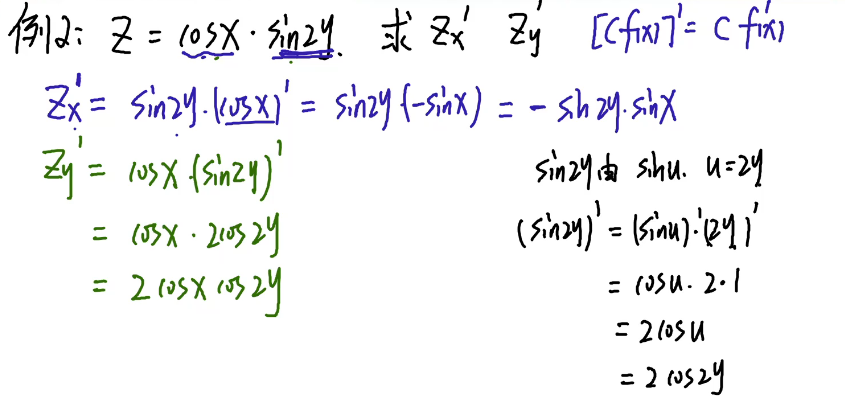 例12: Z = cosX · sin2y. 求 Zx' Zy' [Cf(x)]' = C f'(x)
Zx' = sin2y·(cosX)' = sin2y·(-sinX) = - sin2y·sinX
Zy' = cosX·(sin2y)'
= cosX · 2cos2y
= 2 cosX cos2y
sin2y由 sinu. u=2y
(sin2y)' = (sinu)'·(2y)'
= cosu · 2·1
= 2cosu
= 2 cos2y